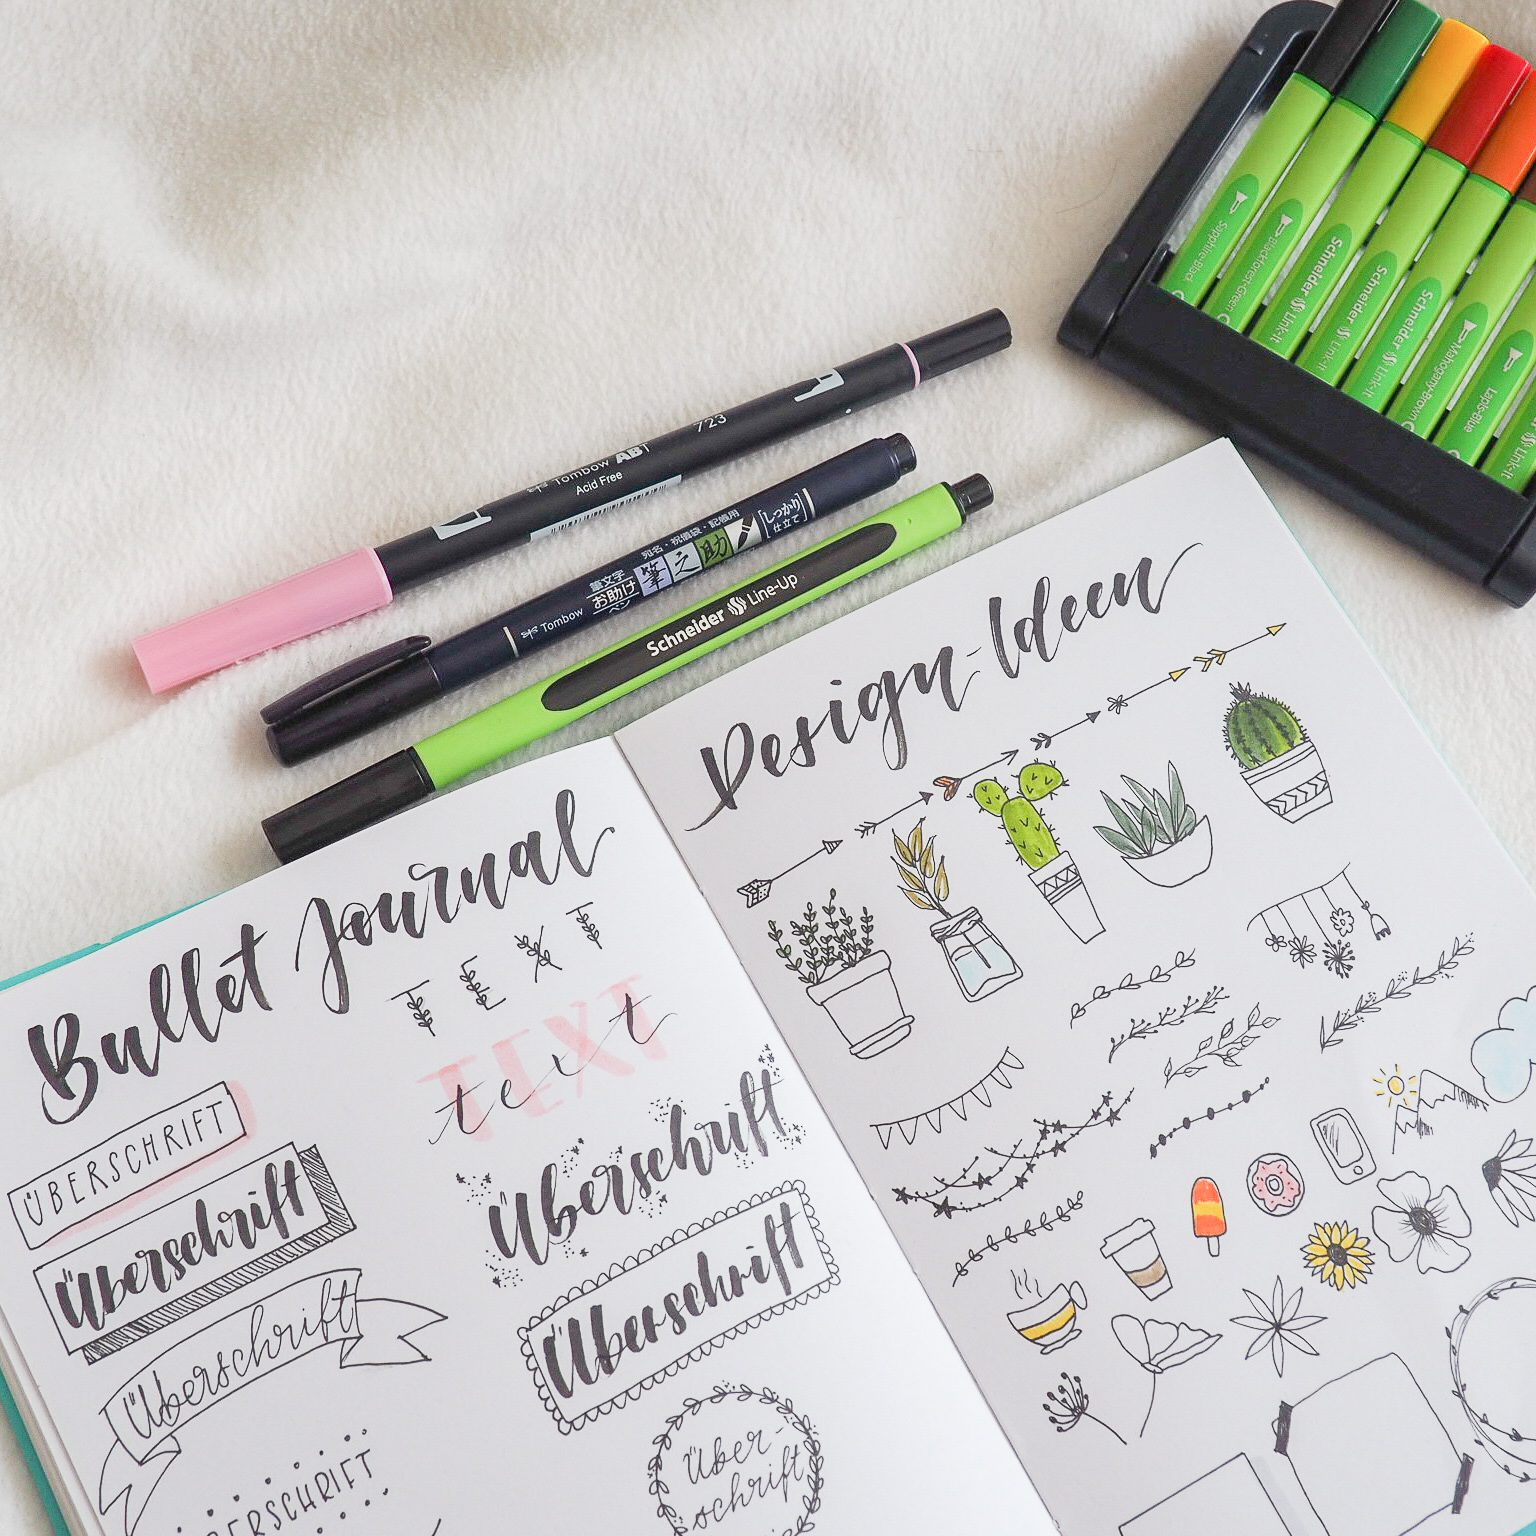 Sapphire-Black
Blackforest-Green
Schneider Link-It
Schneider Link-It
Schneider Link-It
Mahogany-Brown
Lapis-Blue
Link-It
723
Tombow ABT
Acid Free
宛名・祝儀袋・記帳用
筆文字
お助け
ペン
筆之助
しっかり
仕立て
Tombow
Schneider Line-Up
Bullet Journal
TEXT
TEXT
text
ÜBERSCHRIFT
Überschrift
Überschrift
Überschrift
Überschrift
ÜBERSCHRIFT
Über-
schrift
Design-Ideen